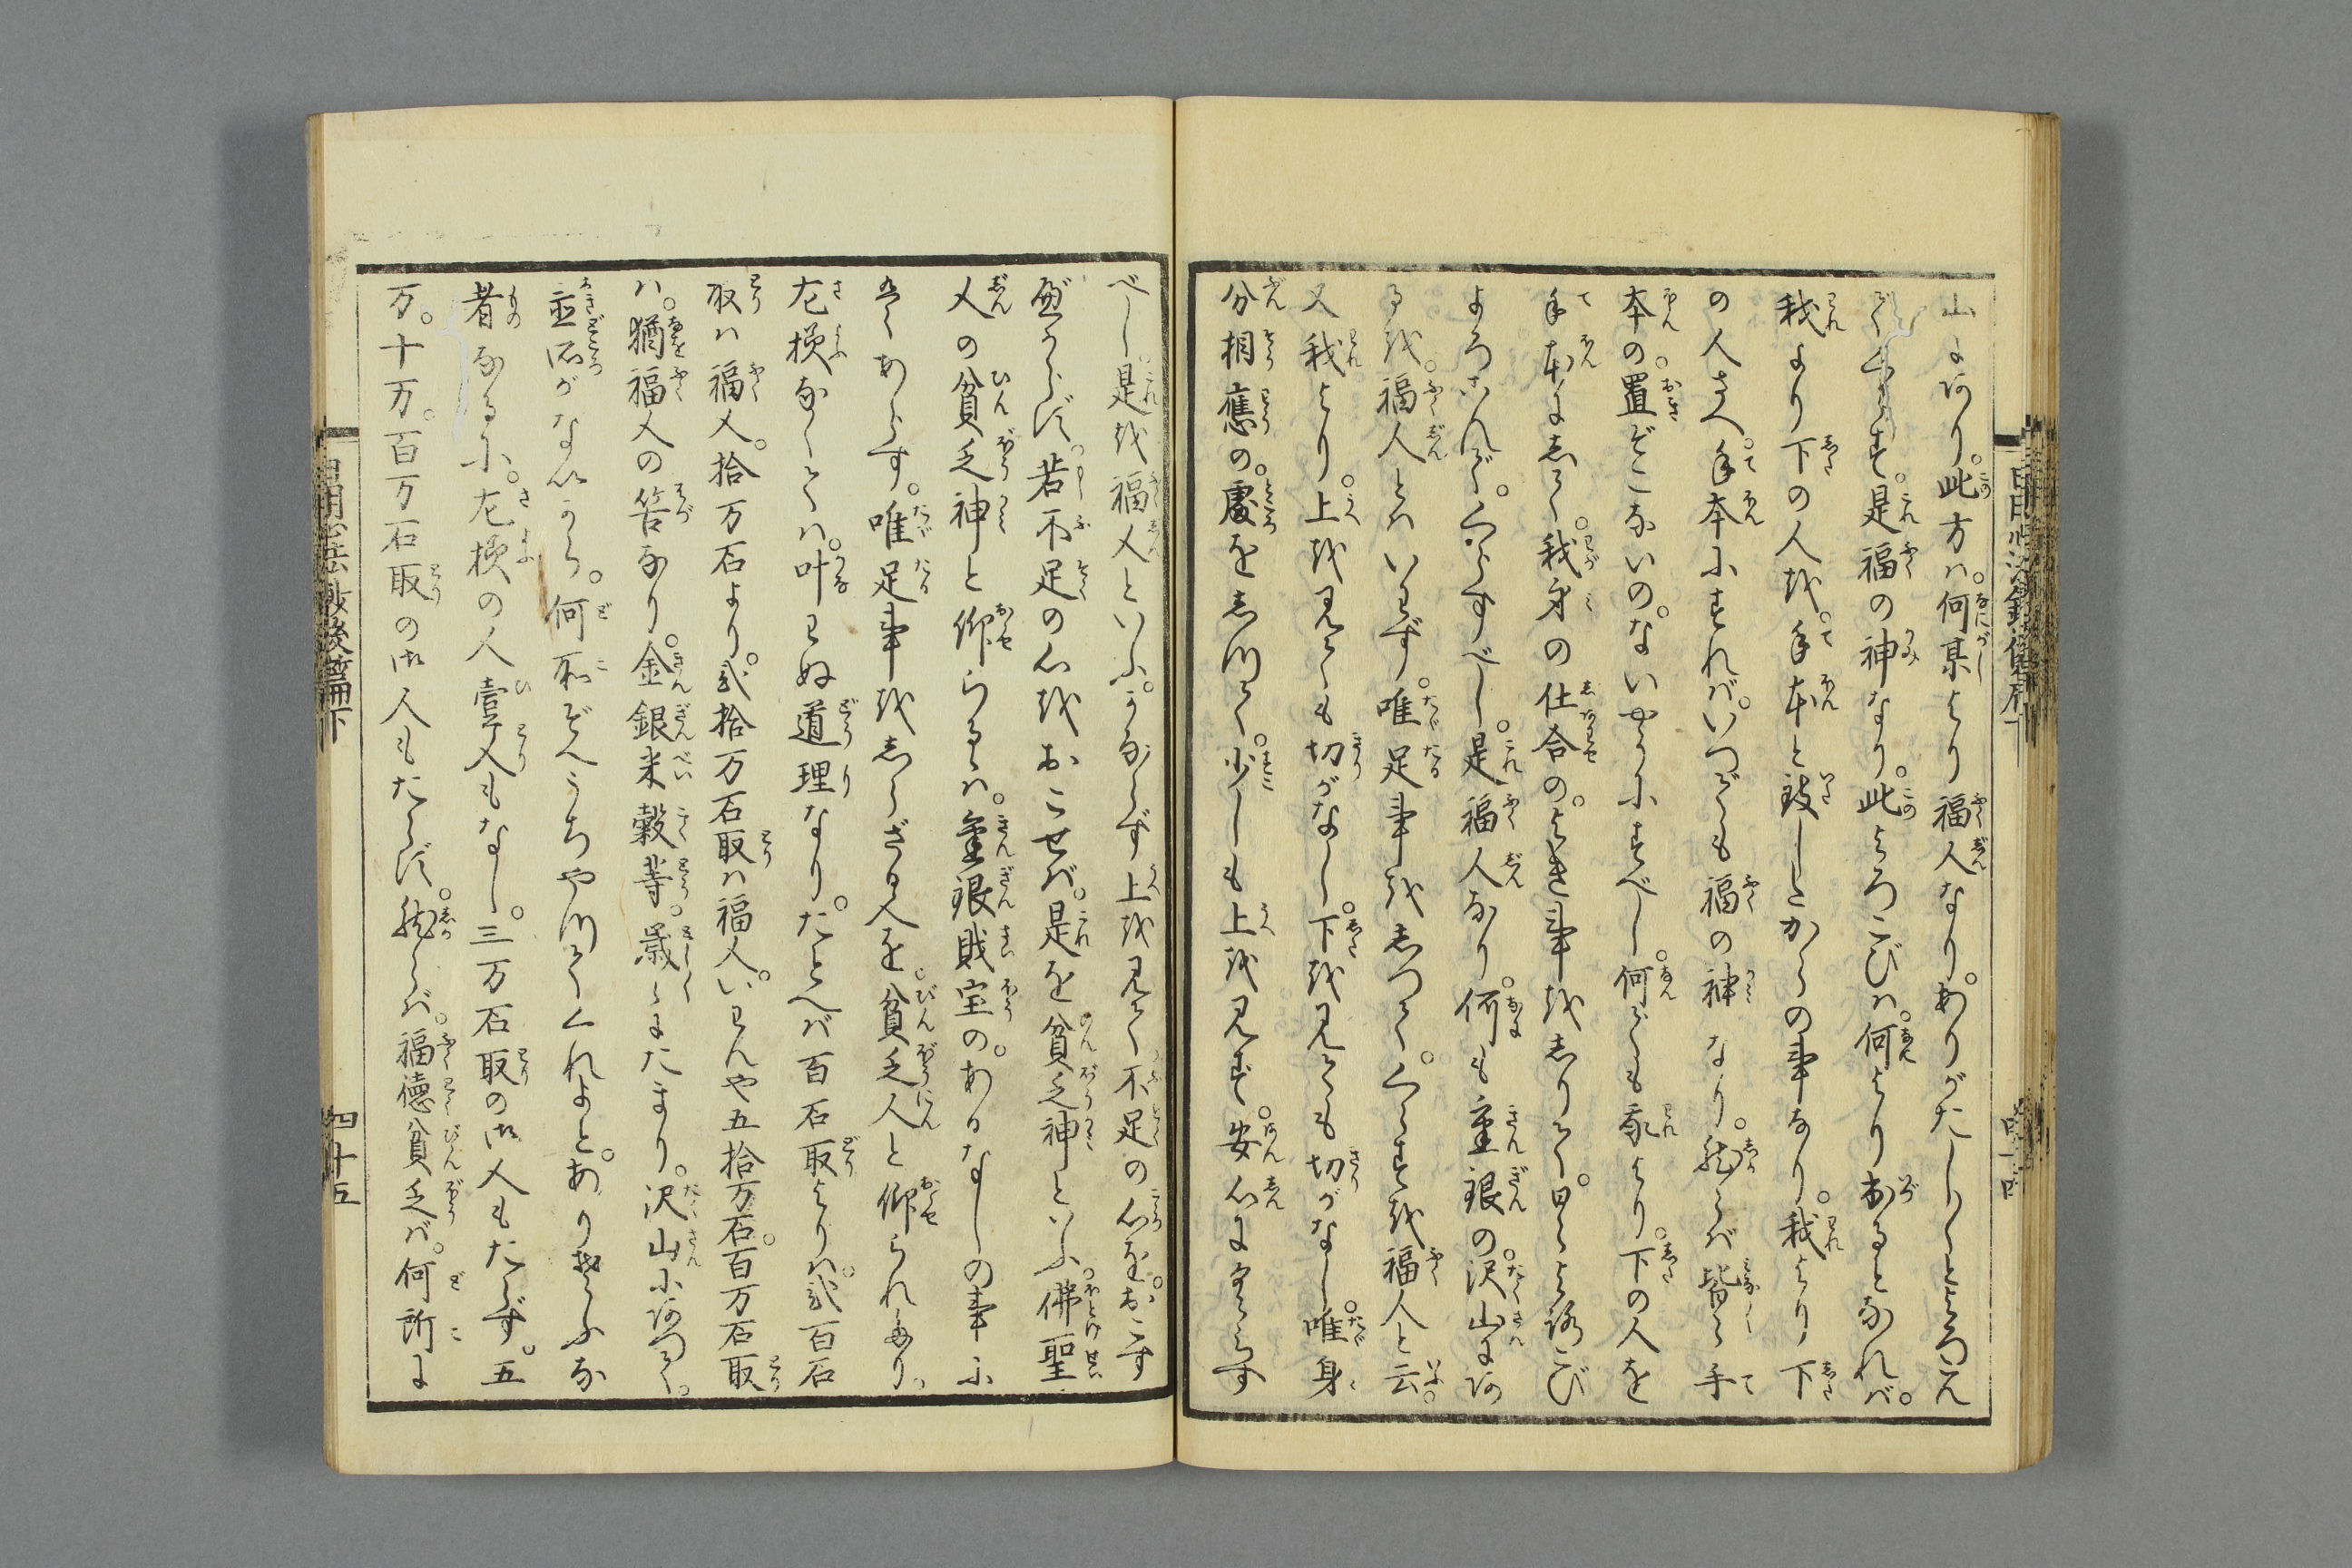 山にあり。此方は。何某より福人なり。ありがたし〳〵とよろこん
で。くらす。是福の神なり。此よろこびは。何より出るとなれば。
我より下の人を。手本と致したからの事なり。我より下
の人さへ。手本にすれば。いつでも福の神なり。然らば皆々手
本の。置どこないの。ないやうにすべし。何でも我より。下の人を
手本にして。我身の仕合の。よき事をしりて。日々よろこび
よろこんで。くらすべし。是福人なり。何も金銀の沢山にあ
るを。福人とはいはず。唯足事をしつて。くらすを福人と云。
又我より。上を見ても切がなし。下を見ても切がなし。唯身
分相應の。處をしつて。少しも上を見ず。安心にくらす
べし。是を福人といふ。かならず上を見て不足の心を。おこす
べからず。若不足の心をおこせば。是を貧乏神といふ。佛聖
人の貧乏神と仰らるゝは。金銀財宝の。あるなしの事に
てあらず。唯足事をしらざる人を。貧乏人と仰られたり。
左様なくては。叶はぬ道理なり。たとへば百石取よりは。弐百石
取は福人。拾万石より。弐拾万石取は福人。いはんや五拾万石。百万石取
は。猶福人の筈なり。金銀米穀等。歳々にたまり。沢山にあつて。
置所がないから。何所ぞへうちやつてくれよと。ありそふな
者なるに。左様の人壹人もなし。三万石取の御人もたらず。五
万。十万。百万石取の御人もたらず。然らば。福徳貧乏ば。何所に
四十五